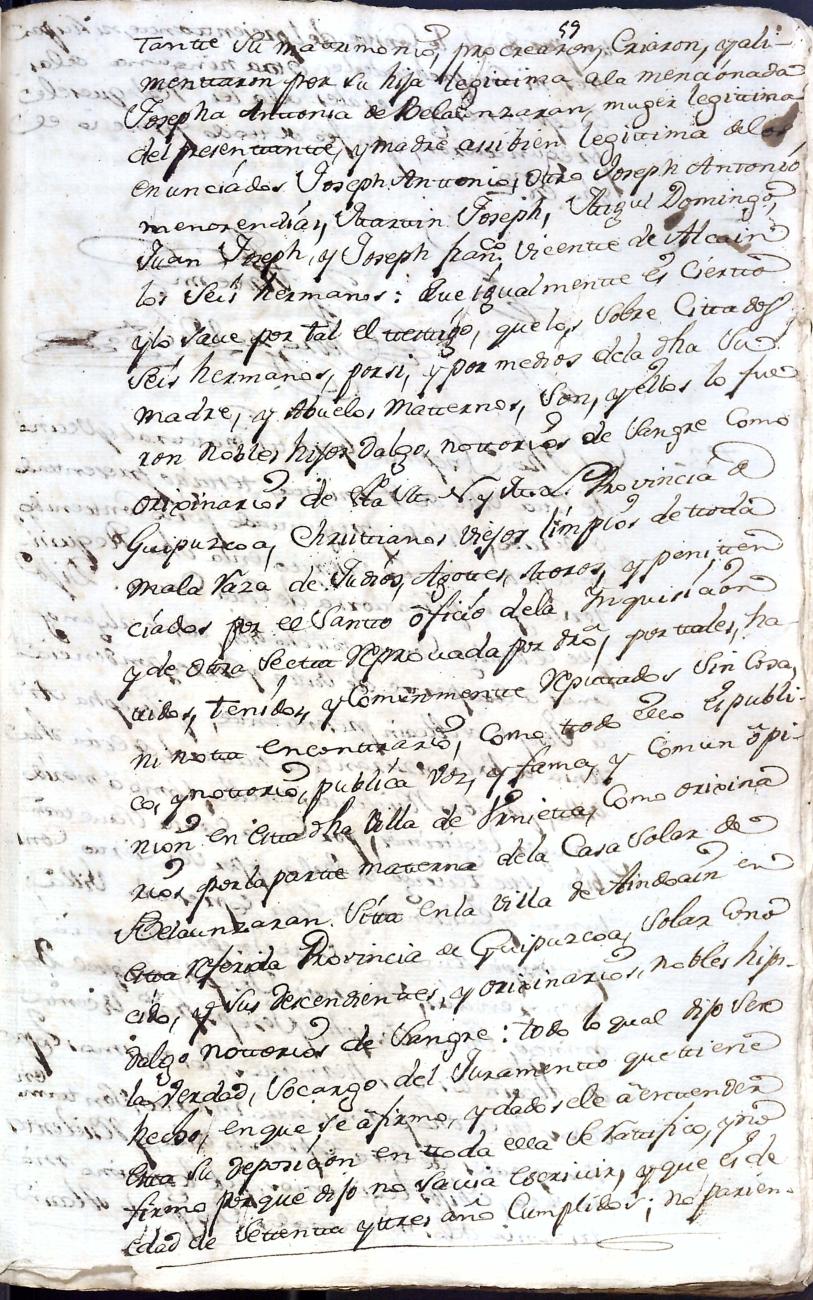 59
tante su matrimonio, procrearon, Criaron, y ali-
mentaron por su hija legittima ala mencionada
Josepha Antonia de Belaunzaran, muger legitima
del presentante, y madre assibien legitima delos
enunciádos Joseph Antonio, otro Joseph Antonio
menor en dias, Martin Joseph, Miguel Domingo,
Juan Joseph, y Joseph franco. Vicente de Alcain
los seis hermanos: Que igualmente és Ciertto
y lo save por tal el testigo, que los sobre Cittados
seis hermanos, por si, y por medios dela dha su
madre, y Abuelos Matternos, son, y ellos lo fue
ron Nobles hijos Dalgo, nottorios de Sangre Como
orixinarios de esta M. N. y M. L. Provincia de
Guipuzcoa, Christianos viejos limpios de toda
mala raza de Judios, Agotes, Moros, y peniten
ciados por el Santo óficio dela Inquisicion
y de otra Secta reprovada por dro, por tales, ha-
vidos, tenidos, y Comunmente reputtados sin Cosa,
ni notta encontrario, Como todo ello es publi-
co, y nottorio, publica voz, y fama, y Comun ôpi-
nion en esta dha Villa de Urnieta, Como orixina
rios por la parte materna dela Casa Solar de
Belaunzaran Sita en la Villa de Aindoain en
esta referida Provincia de Guipuzcoa, Solar Cono
cido, y sus descendientes, y orixinarios, nobles hijos-
dalgo nottorios de Sangre: todo lo qual dijo ser
la verdad, socargo del Juramento que tiene
hecho, en que se âfirmo, y dadosele â entender
esta su deposicion en toda ella se ratifico, y no
firmo por que dijo no savia escrivir, y que és de
edad de settenta y tres años Cumplidos; no parien-